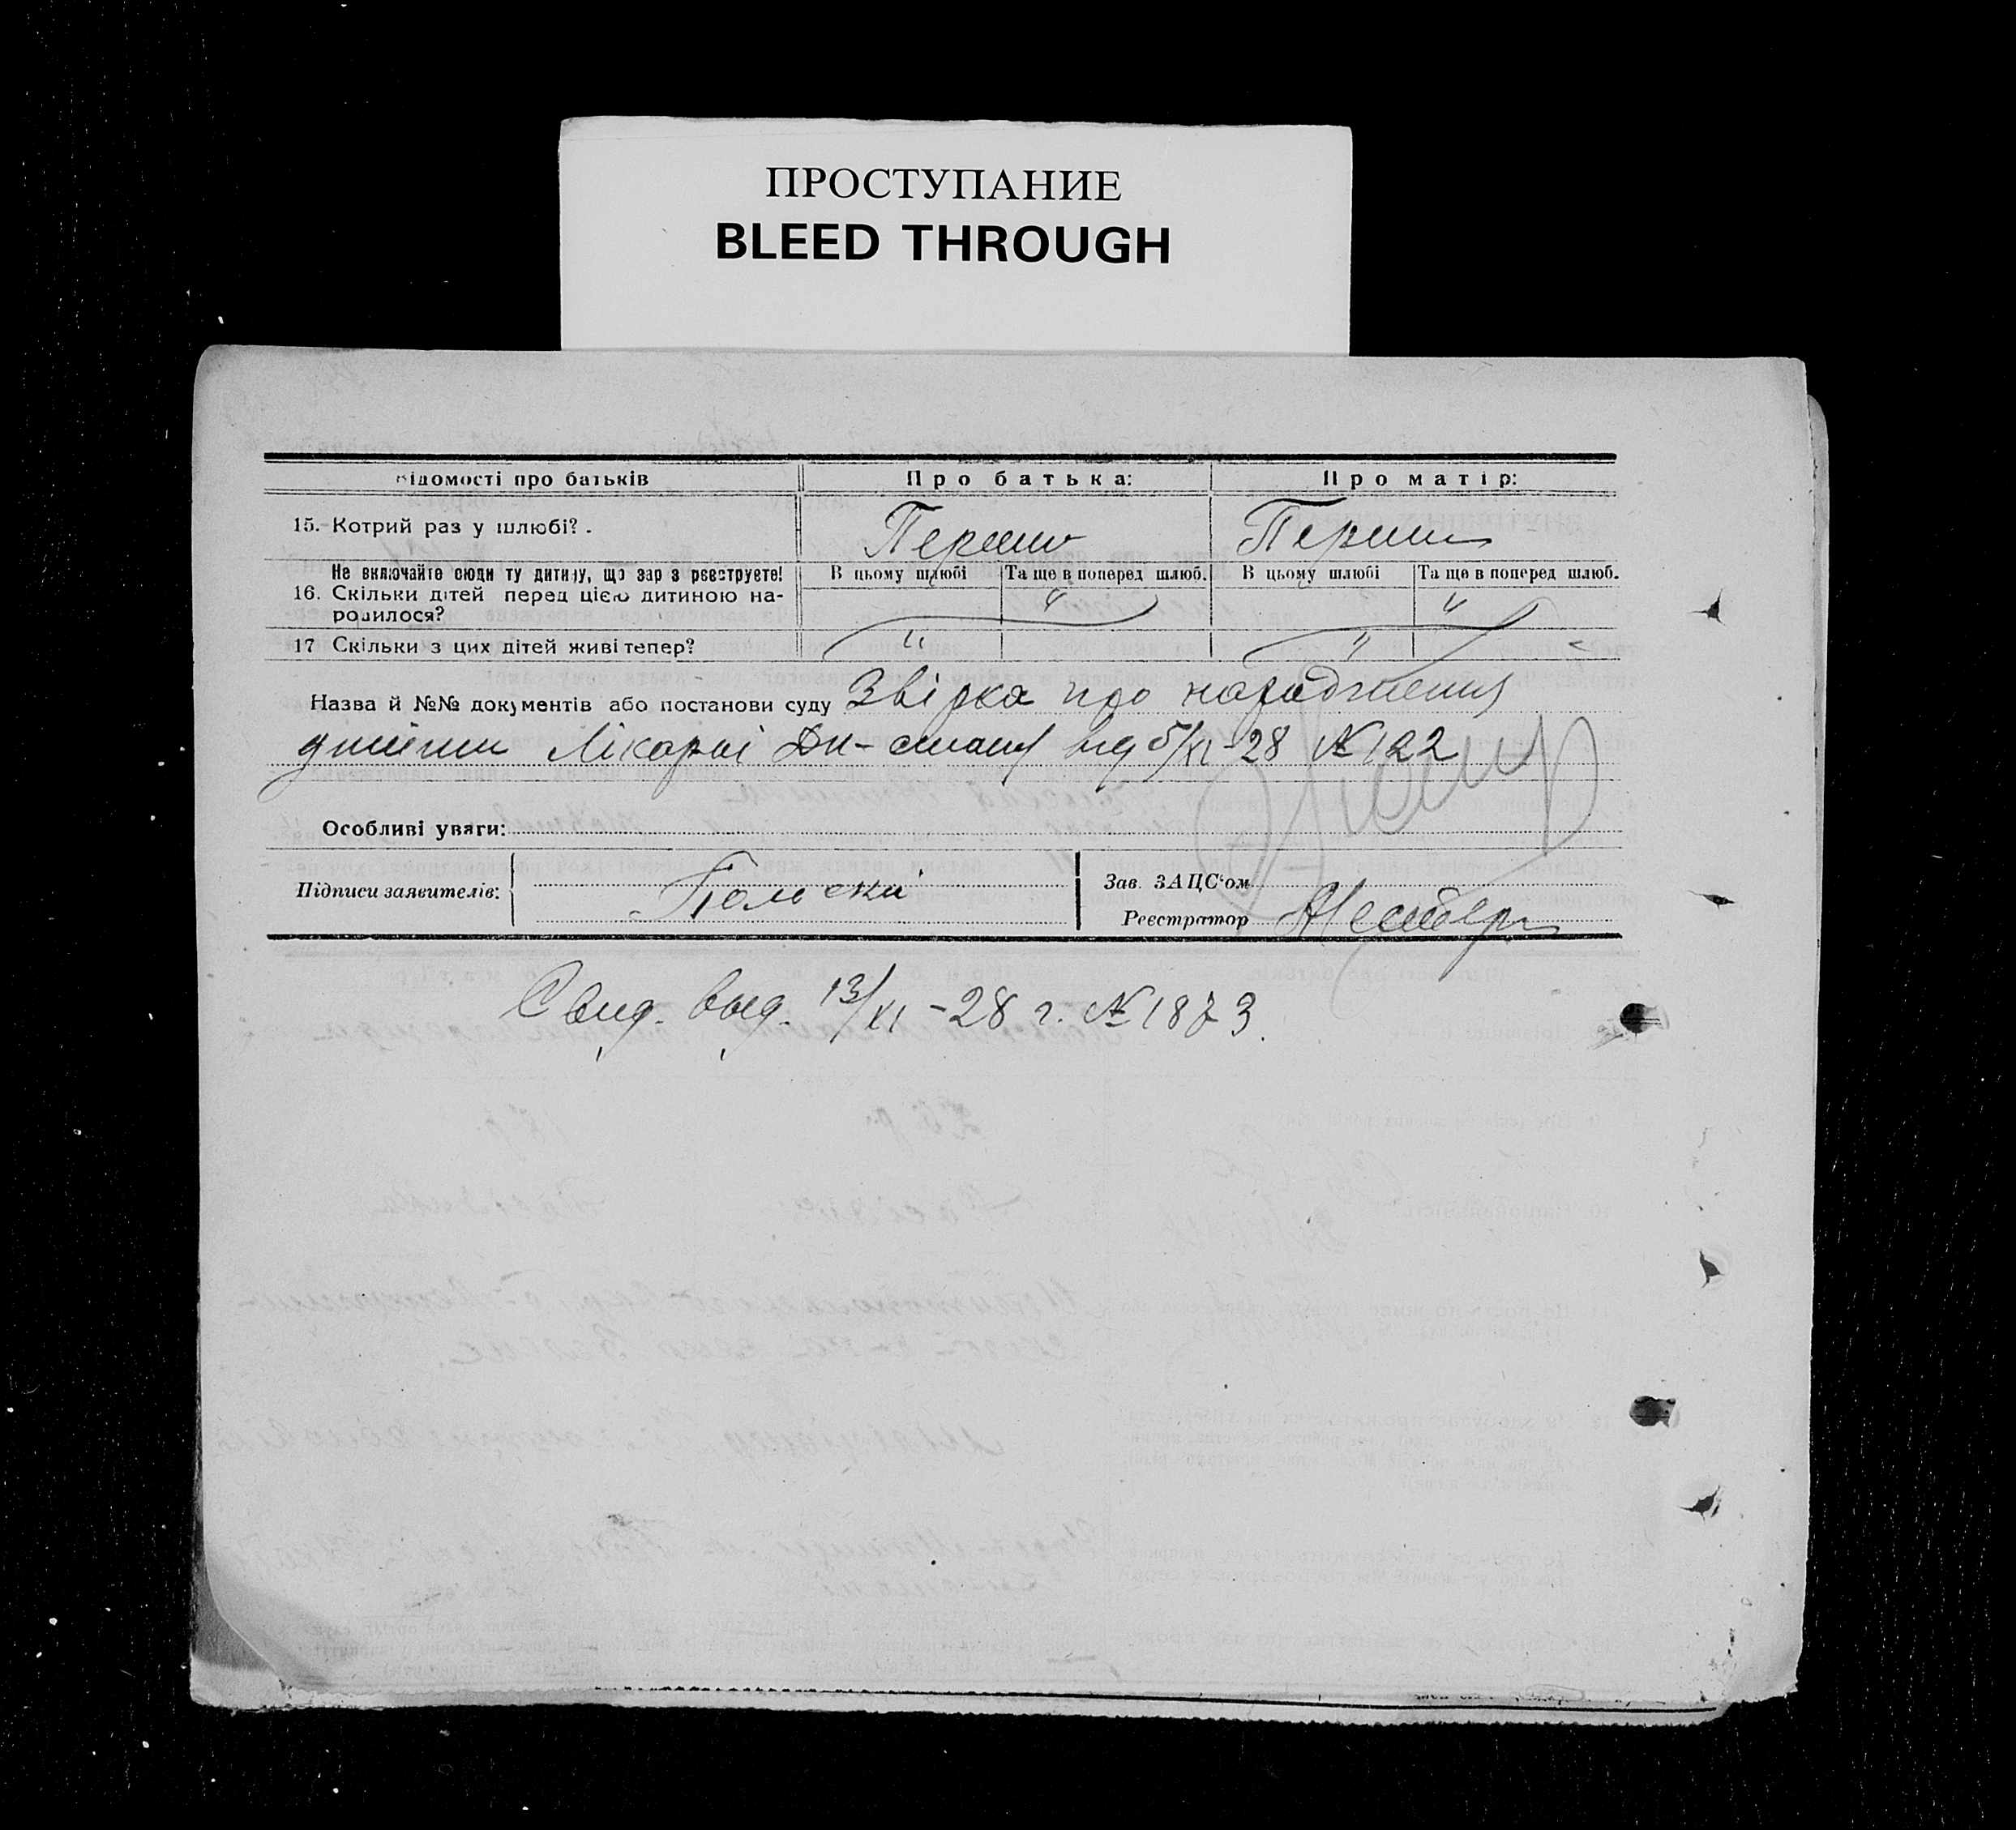 ПРОСТУПАНИЕ
BLEED THROUGH
відомості про батьків
Про батька:
Про матір:
15. Котрий раз у шлюбі?.
Перший
Перший
Не включайте сюди ту дитину, що зараз реєструєте!
В цьому шлюбі
Та ще в поперед шлюб.
В цьому шлюбі
Та ще в поперед шлюб.
16. Скільки дітей перед цією дитиною на-
родилося?
"
"
17 Скільки з цих дітей живі тепер?
"
"
Назва й №№ документів або постанови суду Звірка про народження
дитини Лікарні Дн- від 5/XI-28 № 122
Особливі уваги:
Підписи заявителів:
Зав. ЗАЦС'ом
Реєстратор
Свид. выд. 13/XI-28 г. № 1873.